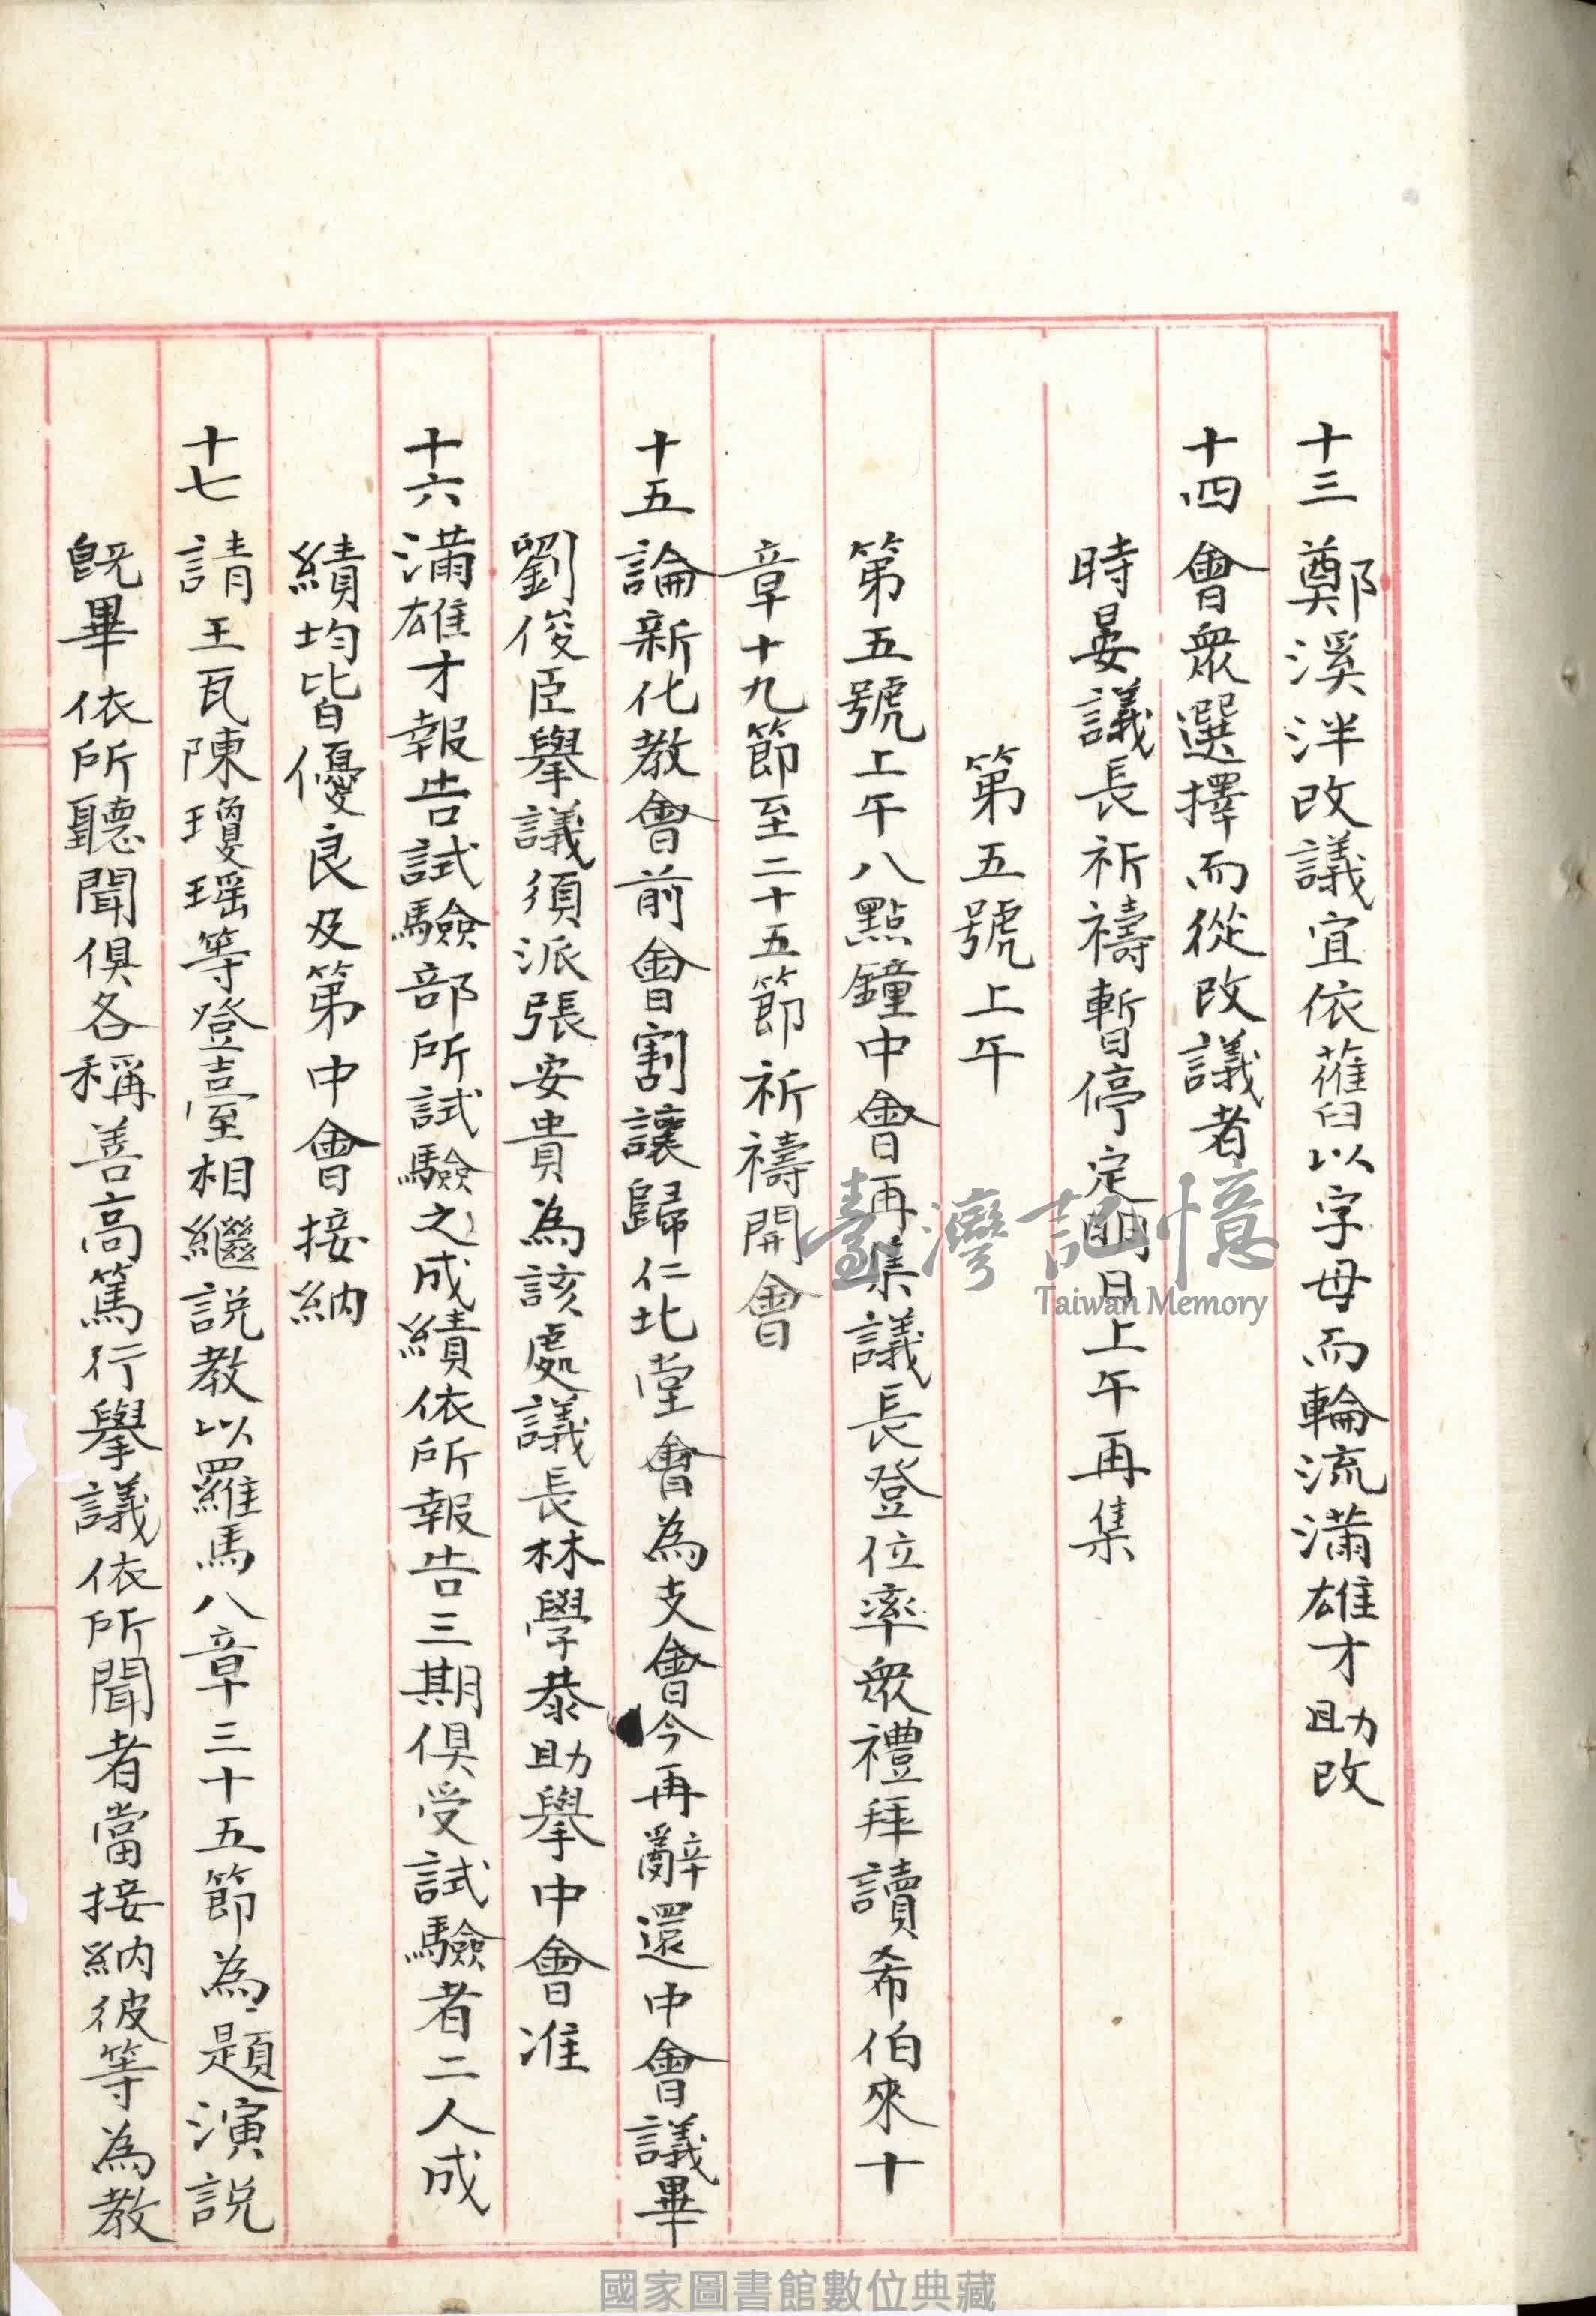 十三 鄭溪泮改議宜依舊以字母而輪流滿雄才助改
十四 會眾選擇而從改議者
時晏議長祈禱暫停定明日上午再集
第五號上午
第五號上午八點鐘中會再集議長登位率眾禮拜讀希伯來十
章十九節至二十五節祈禱開會
十五 論新化教會前會割讓歸仁北堂會為支會今再辭還中會議畢
劉俊臣舉議須派張安貴為該處議長林學恭助舉中會准
十六 滿雄才報告試驗部所試驗之成績依所報告三期俱受試驗者二人成
績均皆優良及第中會接納
十七 請王瓦陳瓊瑤等登臺相繼說教以羅馬八章三十五節為題演説
既畢依所聽聞俱各稱善高篤行舉議依所聞者當接納彼等為教
臺灣記憶
Taiwan Memory
國家圖書館數位典藏